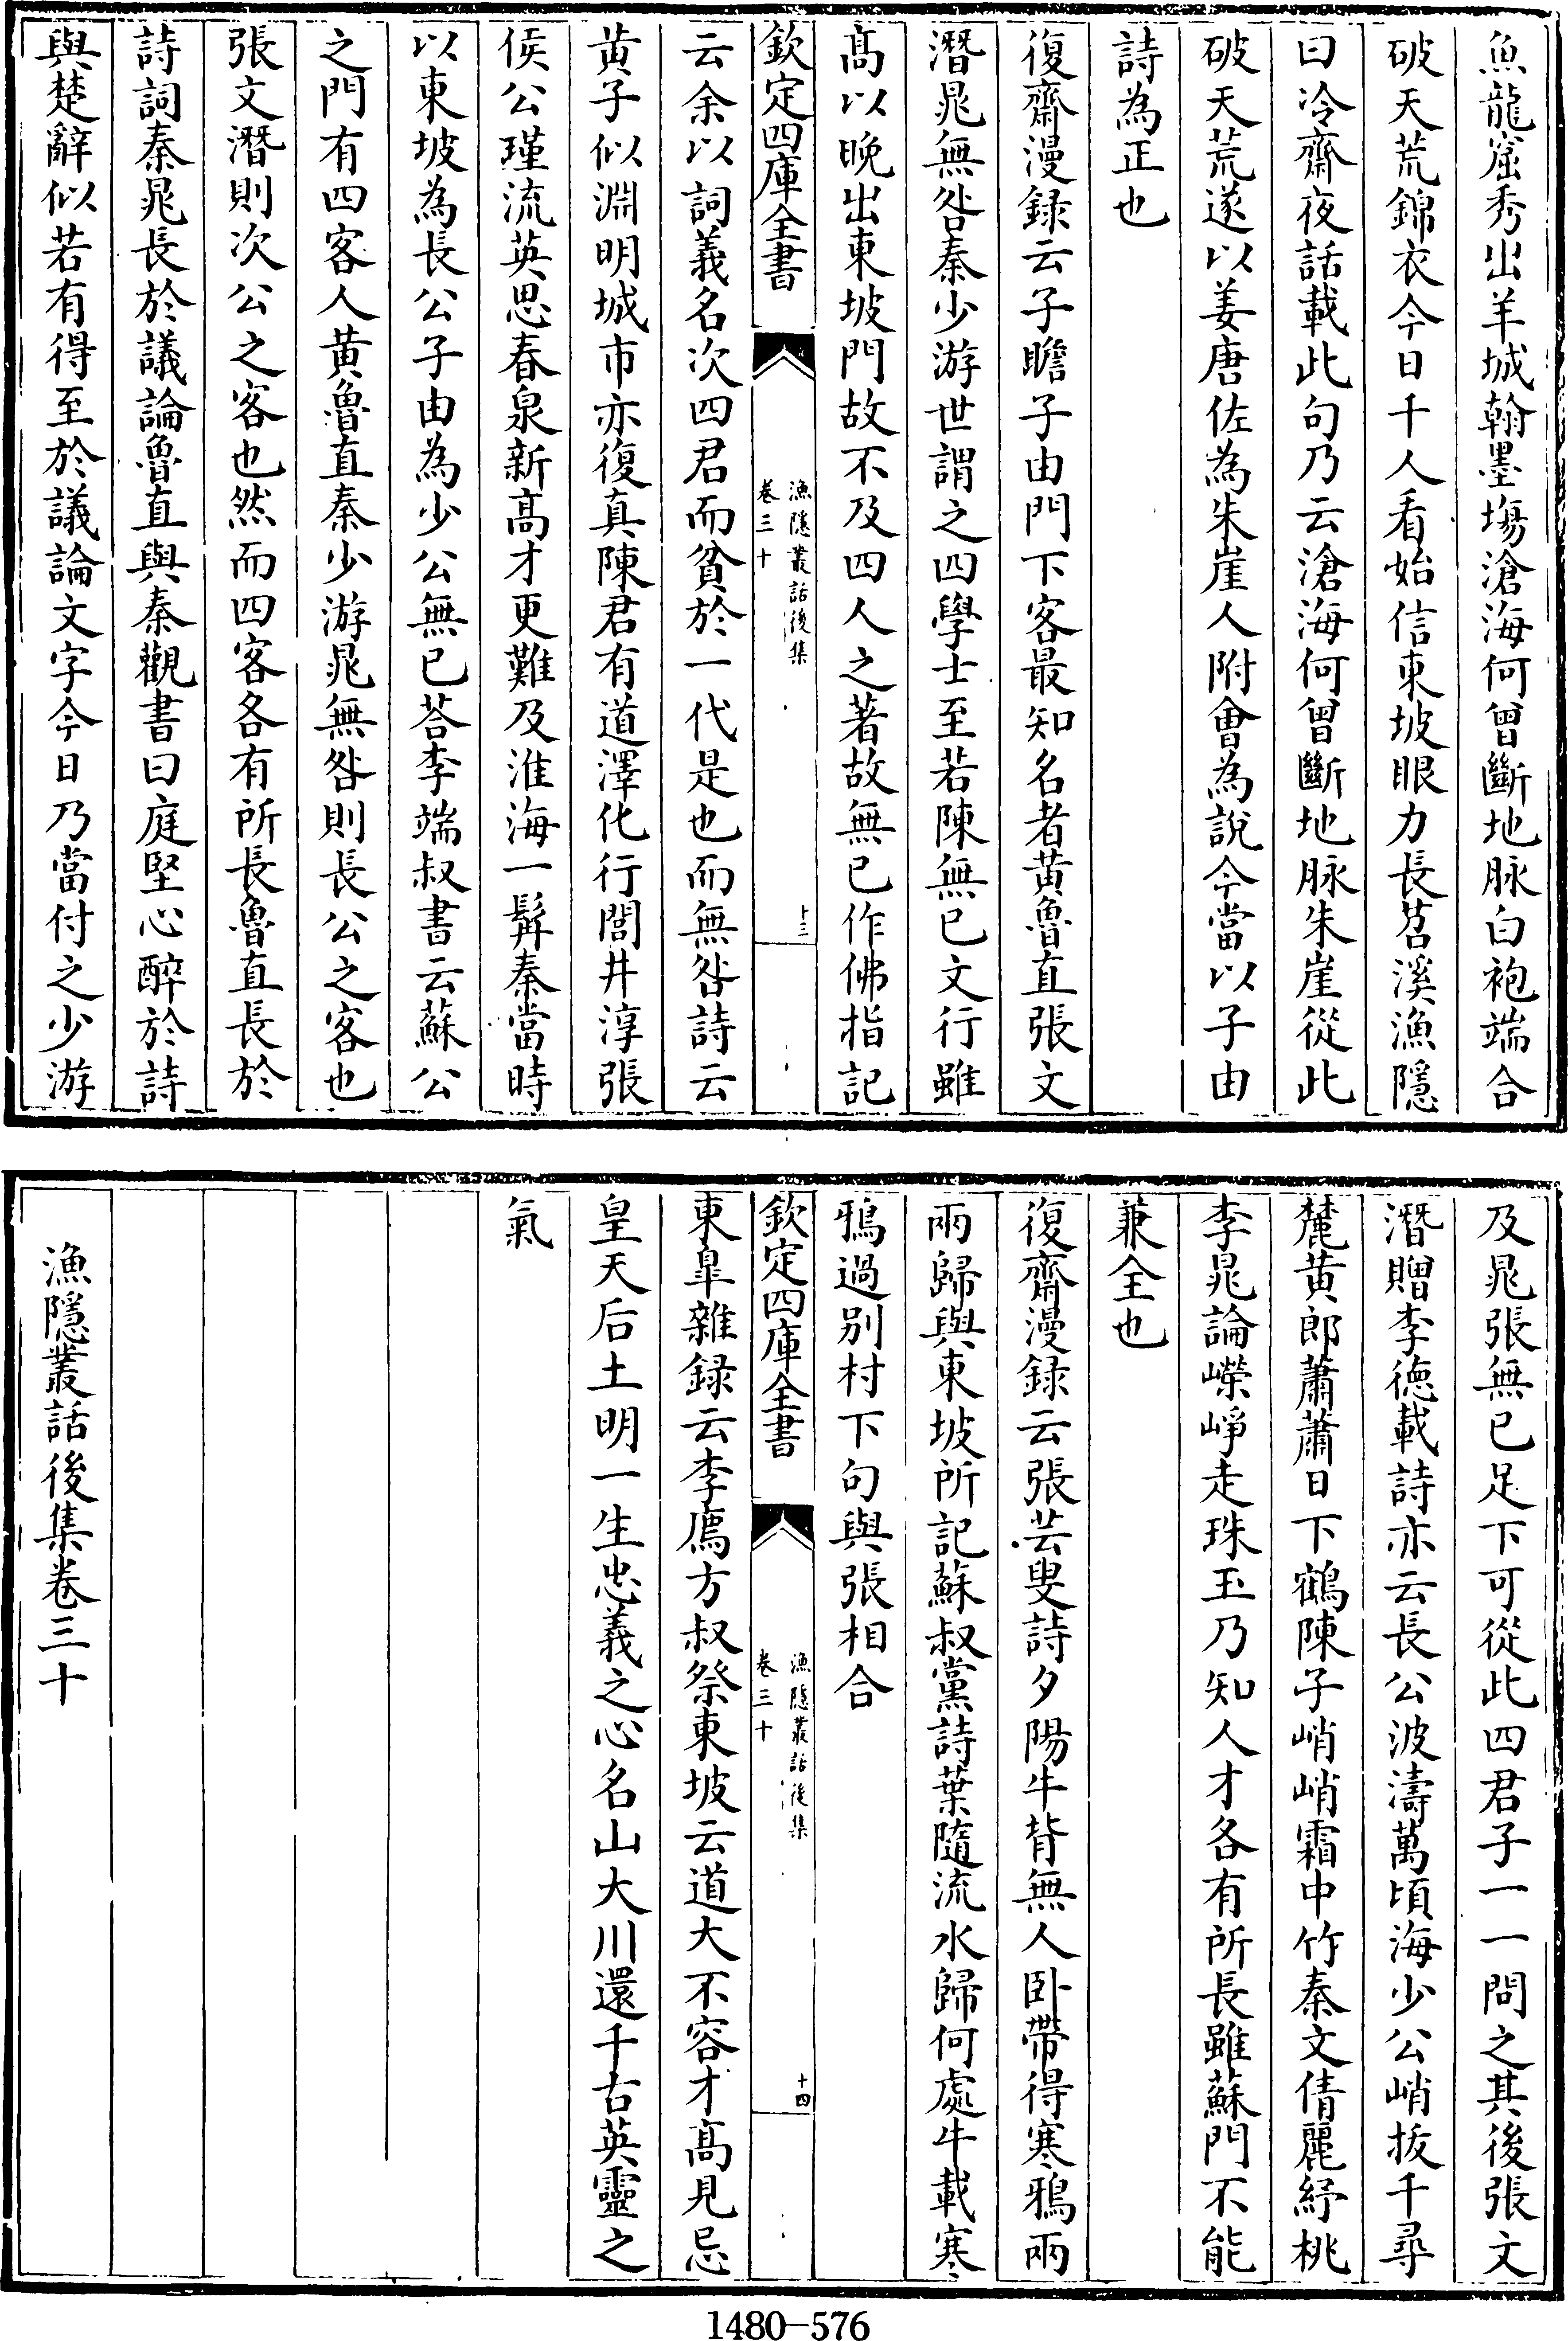 魚龍窟秀出羊城翰墨場滄海何曾斷地脉白袍端合
破天荒錦衣今日千人看始信東坡眼力長苕溪漁隱
曰冷齋夜話載此句乃云滄海何曾斷地脉朱崖從此
破天荒遂以姜唐佐為朱崖人附會為說今當以子由
詩為正也
復齋漫録云子瞻子由門下客最知名者黄魯直張文
潛晁無咎秦少游世謂之四學士至若陳無已文行雖
髙以晚出東坡門故不及四人之著故無已作佛指記
欽定四庫全書
漁隱叢話後集
卷三十
十三
云余以詞義名次四君而貧於一代是也而無咎詩云
黄子似淵明城市亦復真陳君有道澤化行閭井淳張
侯公瑾流英思春泉新髙才更難及淮海一髯秦當時
以東坡為長公子由為少公無已荅李端叔書云蘇公
之門有四客人黄魯直秦少游晁無咎則長公之客也
張文潛則次公之客也然而四客各有所長魯直長於
詩詞秦晁長於議論魯直與秦觀書曰庭堅心醉於詩
與楚辭似若有得至於議論文字今日乃當付之少游
及晁張無已足下可從此四君子一一問之其後張文
潛贈李徳載詩亦云長公波濤萬頃海少公峭抜千尋
麓黄郎蕭蕭日下鶴陳子峭峭霜中竹秦文倩麗紓桃
李晁論嶸崢走珠玉乃知人才各有所長雖蘇門不能
兼全也
復齋漫録云張芸叟詩夕陽牛背無人卧帶得寒鴉兩
兩歸與東坡所記蘇叔黨詩葉隨流水歸何處牛載寒
鴉過别村下句與張相合
欽定四庫全書
漁隱叢話後集
卷三十
十四
東臯雜録云李廌方叔祭東坡云道大不容才髙見忌
皇天后土明一生忠義之心名山大川還千古英靈之
氣
漁隱叢話後集卷三十
1480-576